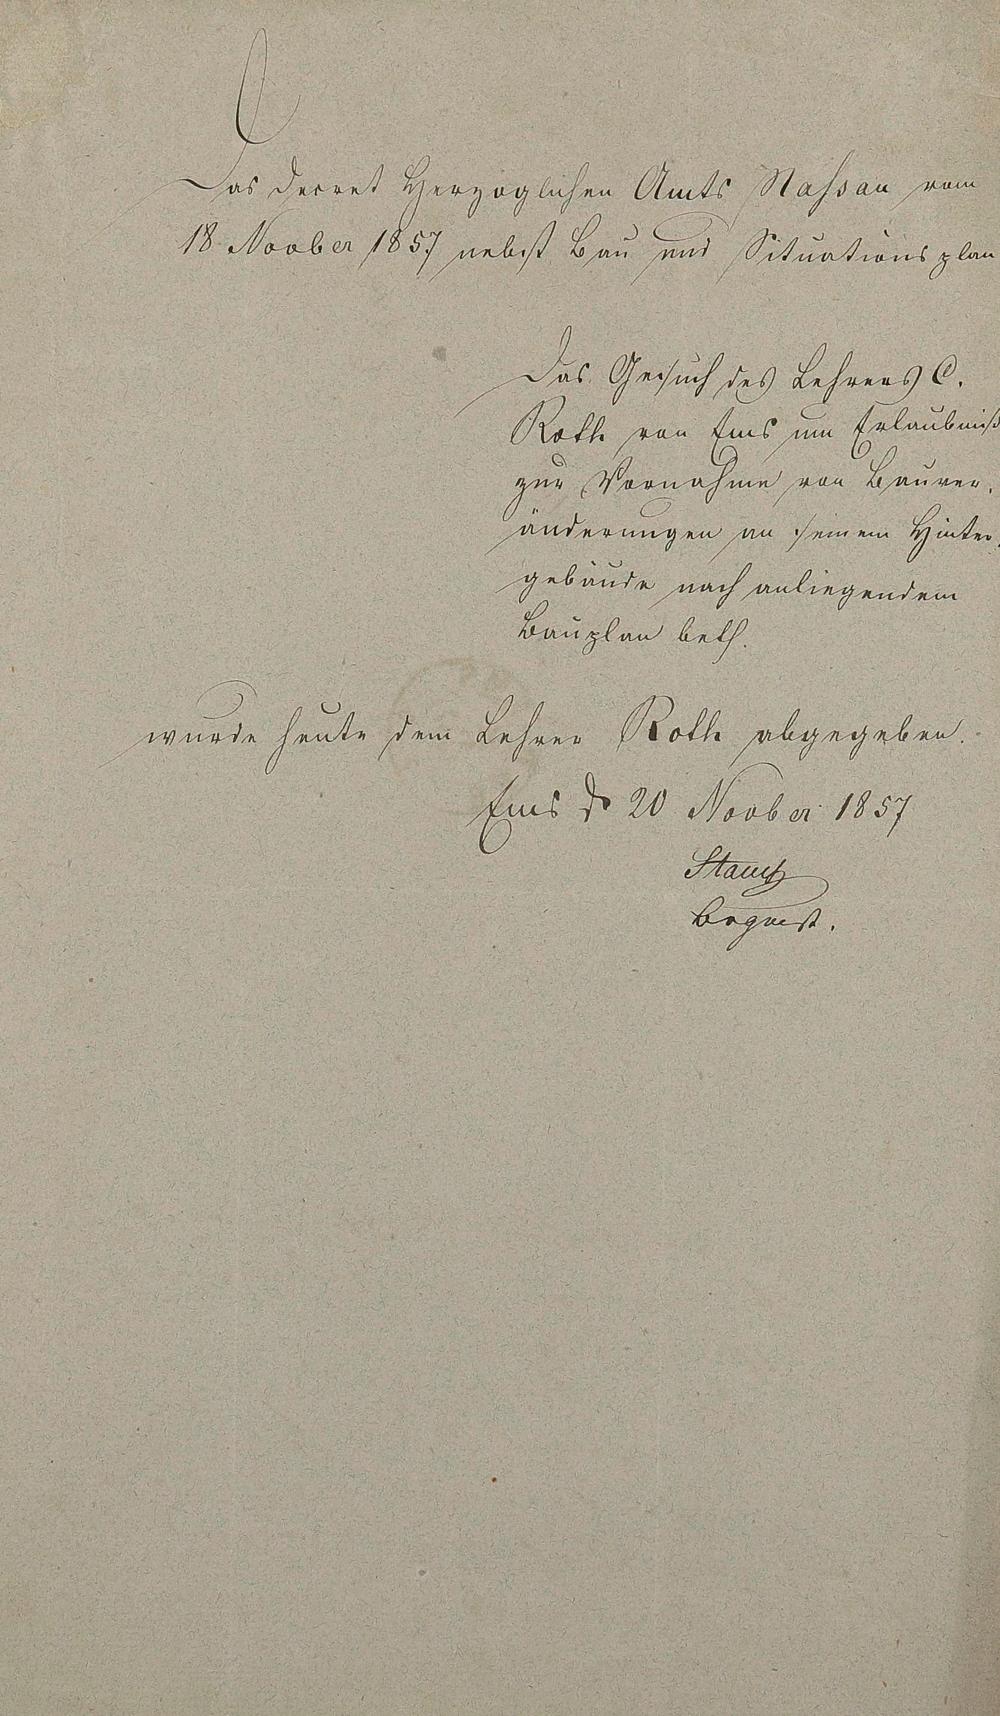 Das Decret Herzoglichen Amts Nassau vom
18 Novber 1857 nebst Bau und Situationsplan
Das Gesuch des Lehrers C.
Roth von Ems um Erlaubniß
zur Vornahme von Bauver-
änderungen an seinem Hinter-
gebäude nach anliegendem
Bauplan betf.
wurde heute dem Lehrer Roth abgegeben.
Ems d 20 Novber 1857